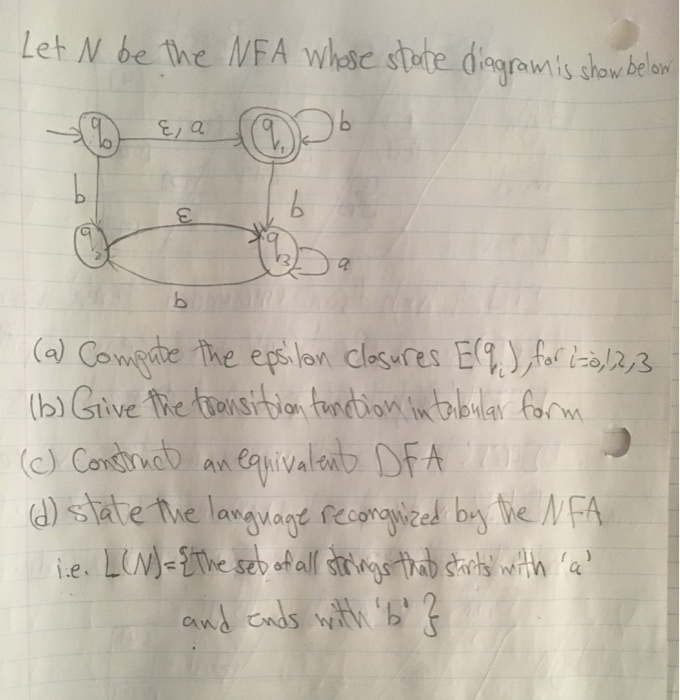 Let N be the NFA whose state diagram is show below
ε, a
b
q0
q1
b
b
ε
q2
q3
a
b
(a) Compute the epsilon closures E(qi), for i=0,1,2,3
(b) Give the transition function in tabular form
(c) Construct an equivalent DFA
(d) state the language recongnized by the NFA
i.e. L(N)={The set of all strings that starts with 'a'
and ends with 'b' }